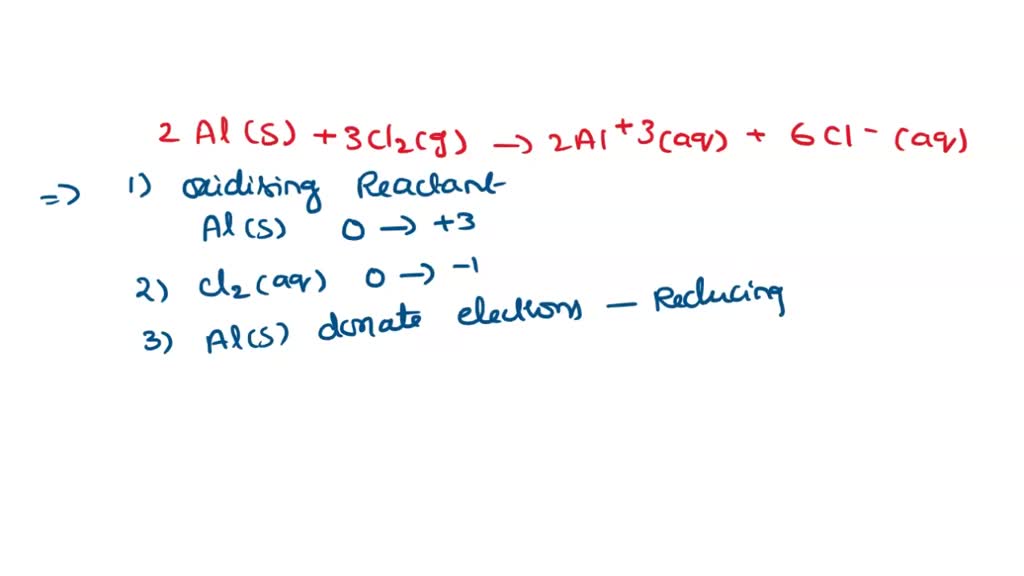 2 Al(s) + 3Cl₂(g) → 2Al⁺³(aq) + 6Cl⁻ (aq)
=> 1) oxidising Reactant
Al(s) 0 → +3
2) Cl₂(aq) 0 → -1
3) Al(s) donate electrons - Reducing